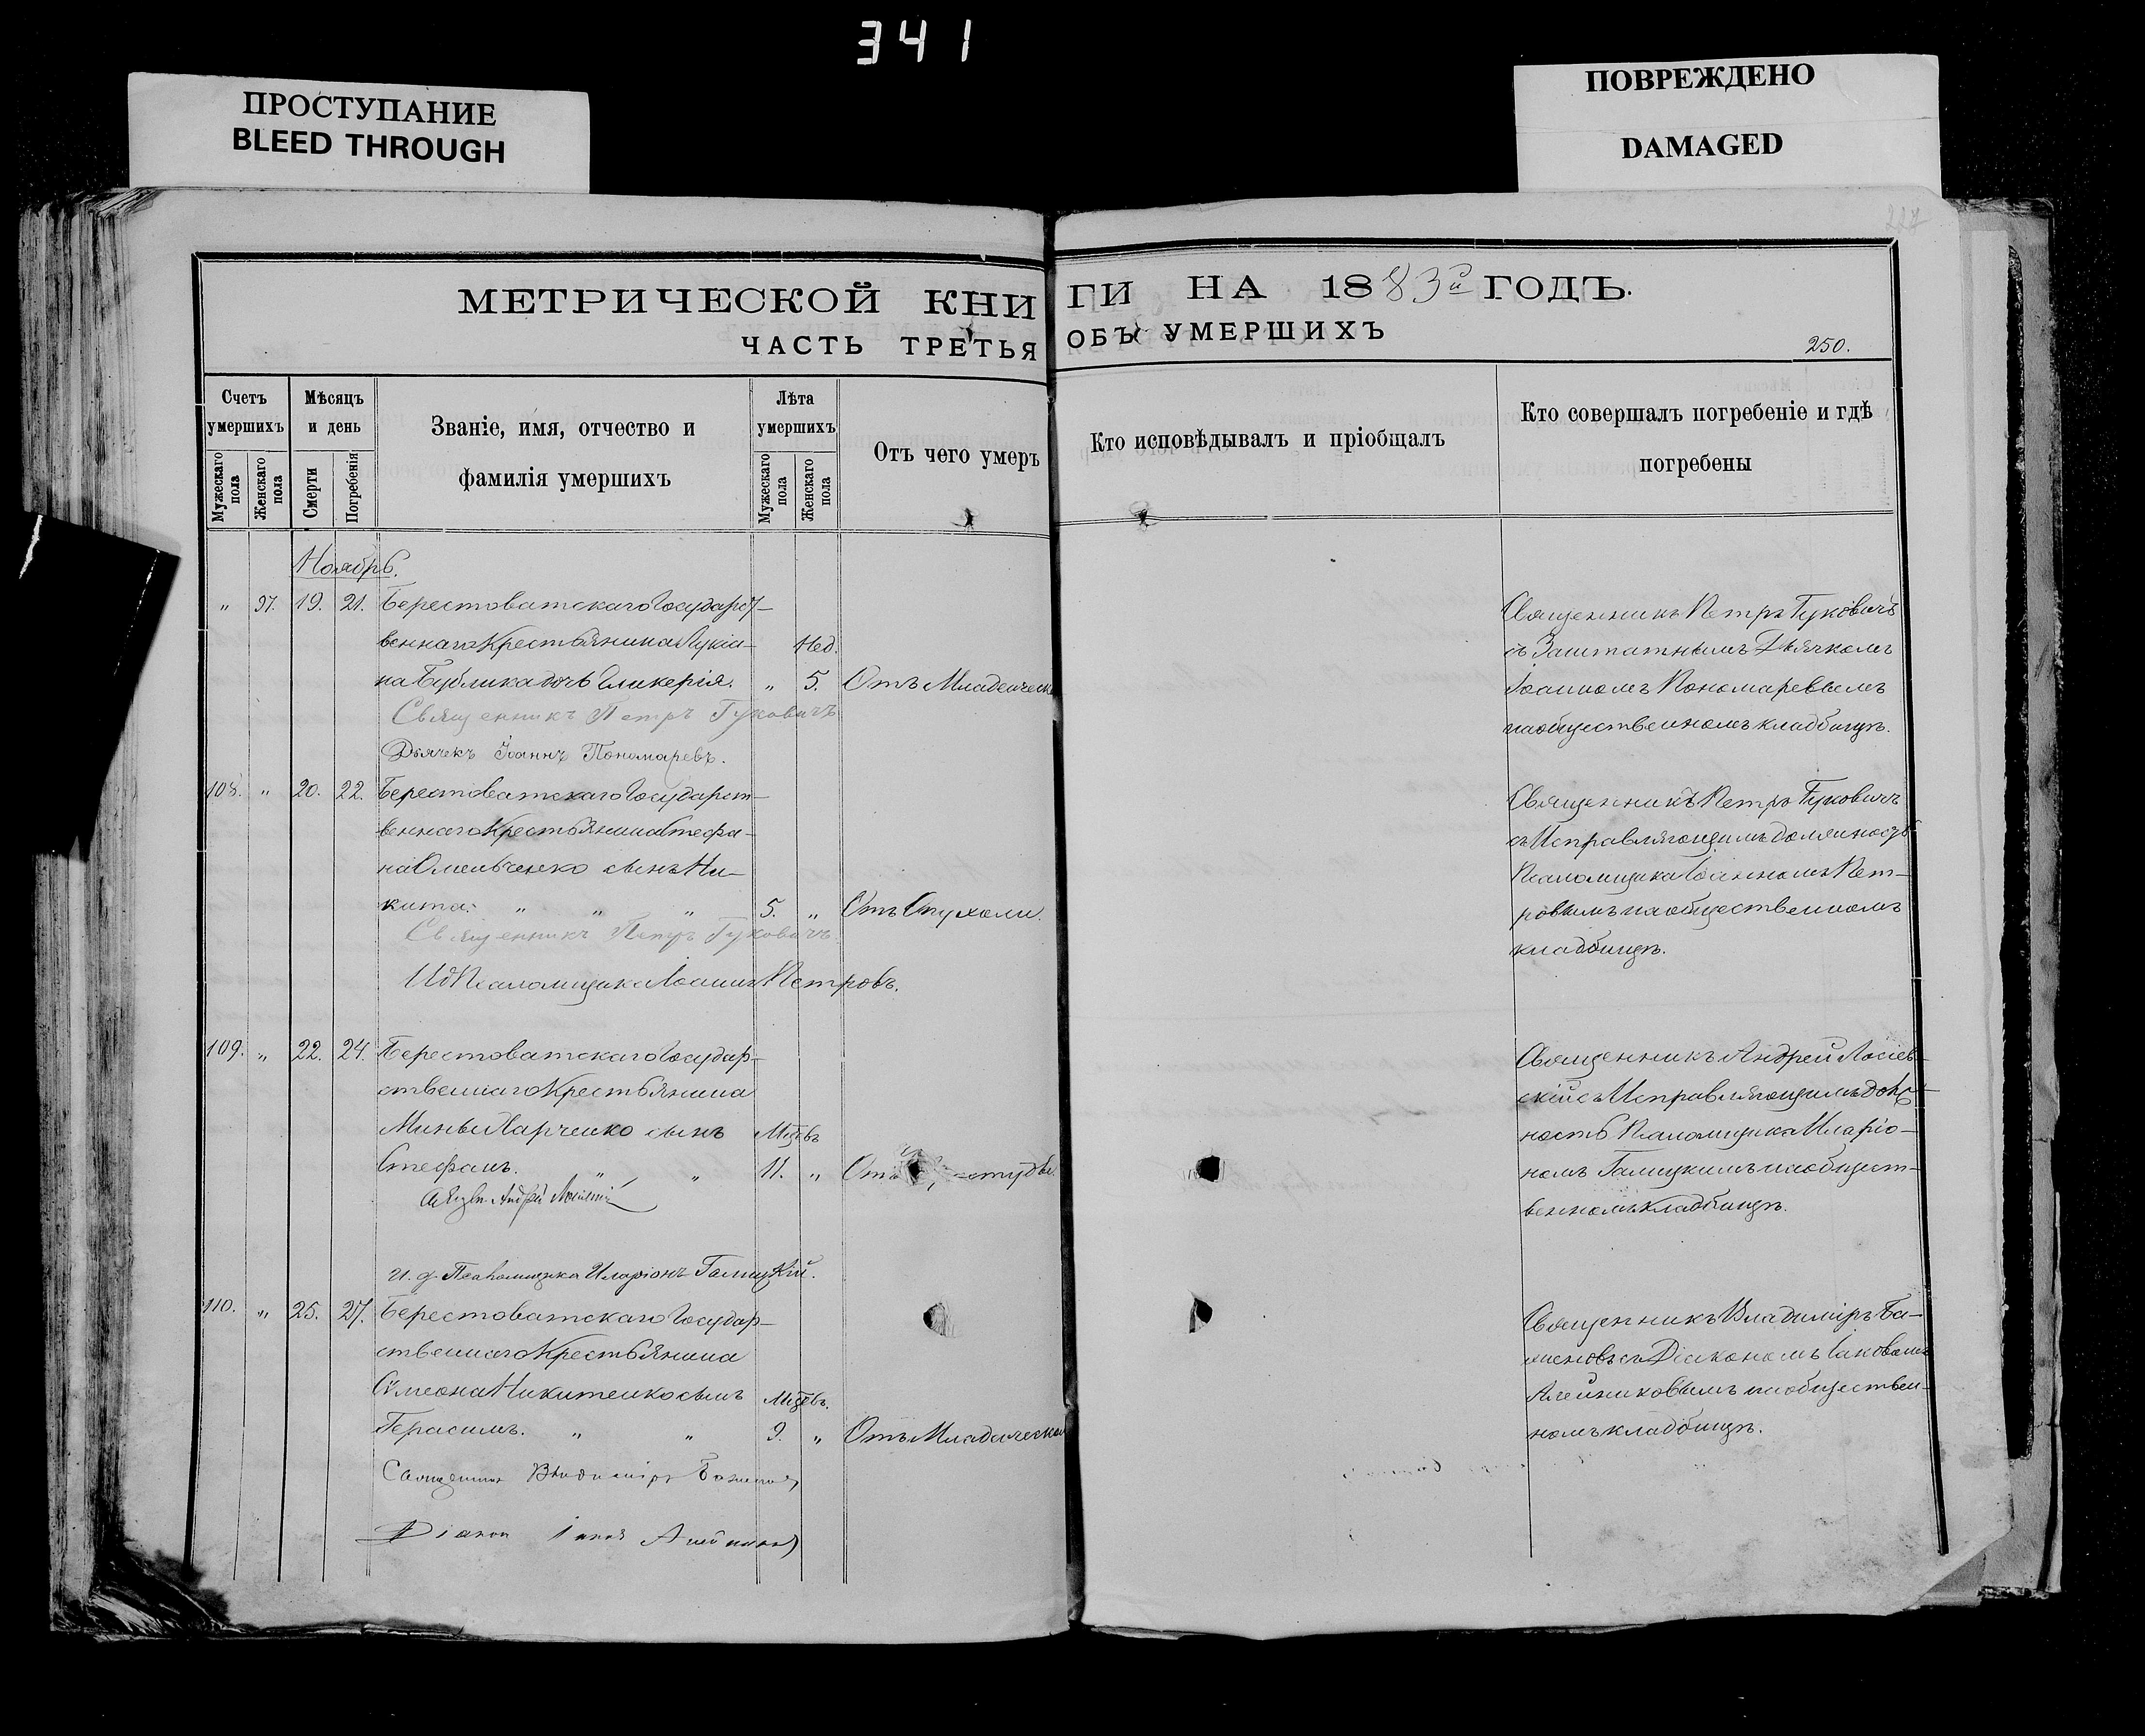 341
ПРОСТУПАНИЕ
BLEED THROUGH
ПОВРЕЖДЕНО
DAMAGED
МЕТРИЧЕСКОЙ КНИГИ НА 1883й ГОДЪ.
ЧАСТЬ ТРЕТЬЯ ОБЪ УМЕРШИХЪ
250.
Счетъ умершихъ
Мужескаго пола
Женскаго пола
Мѣсяцъ и день
Смерти
Погребенія
Званіе, имя, отчество и
фамилія умершихъ
Лѣта умершихъ
Мужескаго пола
Женскаго пола
Отъ чего умеръ
Кто исповѣдывалъ и пріобщалъ
Кто совершалъ погребеніе и гдѣ
погребены
Ноябрь.
" 97. 19. 21. Берестоватскаго Государст-
веннаго Крестьянина Лукіа- Нед.
на Бублика дочь Гликерія. " 5. Отъ Младеческ
Священникъ Петръ Гуковичъ
Дьячекъ Іоаннъ Пономаревъ.
Священникъ Петръ Гуковичъ
съ Заштатнымъ Дьячкомъ
Іоанномъ Пономаревымъ
на общественномъ кладбищѣ.
108. " 20. 22. Берестоватскаго Государст-
веннаго Крестьянина Стефа-
на Омельченко сынъ Ни-
кита. " " " 5. " Отъ Опухоли.
Священникъ Петръ Гуковичъ
ИД Псаломщика Іоаннъ Петровъ.
Священникъ Петръ Гуковичъ
съ Исправляющимъ должность
Псаломщика Іоанномъ Пет-
ровымъ на общественномъ
кладбищѣ.
109. " 22. 24. Берестоватскаго Государ-
ственнаго Крестьянина
Мины Харченко сынъ Мцевъ
Стефанъ. " " 11. " Отъ
Андрей
и. д. Псаломщика Иларіонъ Галицкій.
Священникъ Андрей Лосіев-
скій съ Исправляющимъ долж-
ность Псаломщика Иларіо-
номъ Галицкимъ на общест-
венномъ кладбищѣ.
110. " 25. 27. Берестоватскаго Государ-
ственнаго Крестьянина
Симеона Никитенко сынъ Мцевъ.
Герасимъ. " " 9. " Отъ Младеческой
Священникъ Владиміръ Баженовъ
Діаконъ Іаковъ Алейниковъ
Священникъ Владиміръ Ба-
женовъ съ Діакономъ Іаковомъ
Алейниковымъ на обществен-
номъ кладбищѣ.